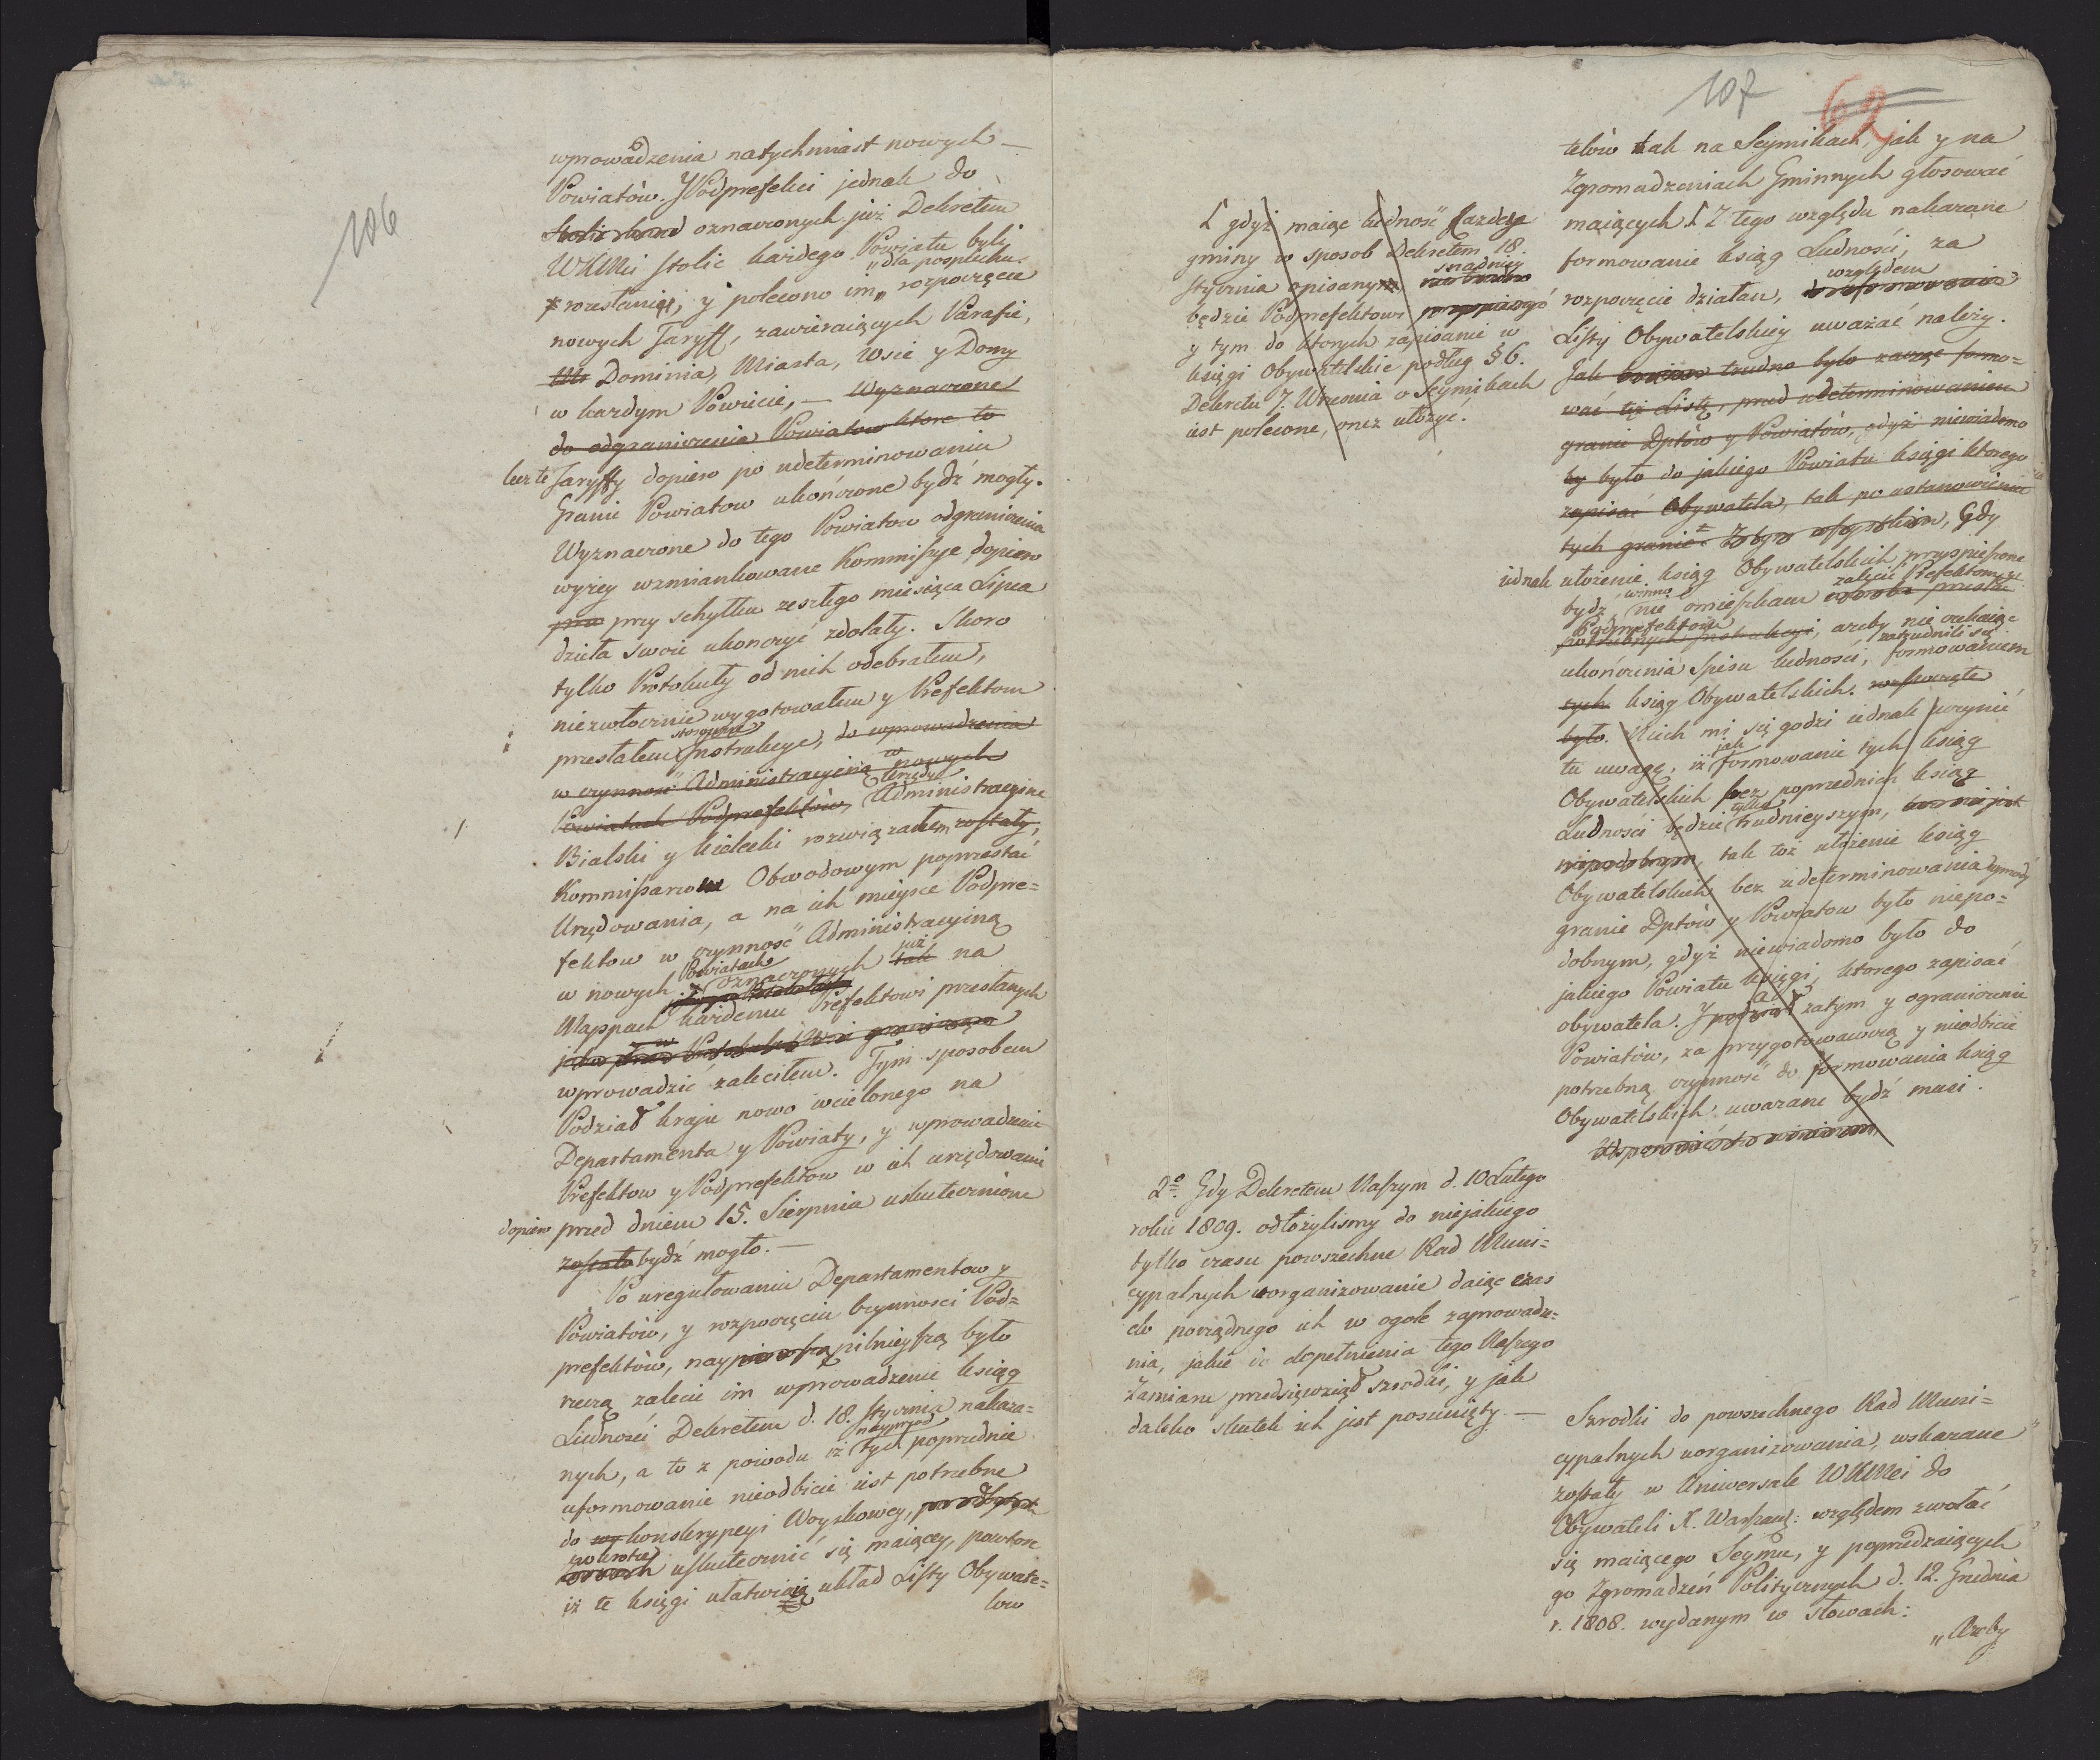 106
wprowadzenia natychmiast nowych —
Powiatów. Podprefekci jednak do
oznaczonych już Dekretem
WKMci stolic każdego Powiatu byli
„dla pospiechu
rozesłani, y polecono im „ rozpoczęcie
nowych Taryff, zawieraiących Parafie,
Dominia, Miasta, Wsie y Domy
w każdym Powiecie, — Wyznaczone
do odgraniczenia Powiatow ktore to
lecz te Taryffy dopiero po udeterminowaniu
Granic Powiatow ukończone bydź mogły.
Wyznaczone do tego Powiatow odgraniczenia
wyżey wzmiankowane Kommissye dopiero
przy schyłku zeszłego miesiąca Lipca
dzieła swoie ukonczyć zdołały. Skoro
tylko Protokuły od nich odebrałem,
niezwłocznie wygotowałem y Prefektom
stosowne
przesłałem Instrukcye, do wprowadzenia
w czynność Administracyiną w nowych
Urzędy
Powiatach Podprefektów, Administracyine
Bialski y Kielecki rozwiązałem, zostały,
Kommissarzom Obwodowym poprzestać
Urzędowania, a na ich mieysce Podpre=
fektow w czynność Administracyiną
Powiatach już
w nowych oznaczonych tak na
Mappach każdemu Prefektowi przesłanych
wprowadzić zaleciłem. Tym sposobem
Podział kraju nowo wcielonego na
Departamenta y Powiaty, y wprowadzenie
Prefektow y Podprefektow w ich urzędowanie
dopiero przed dniem 15. Sierpnia uskutecznione
zostało bydź mogło. —
Po uregulowaniu Departamentow y
Powiatów, y rozpoczęciu czynnosci Pod=
prefektów, naypilnieyszą było
rzeczą zalecić im wprowadzenie ksiąg
Ludności Dekretem d. 18. Stycznia nakaza=
nayprzod
nych, a to z powodu iż tych poprzednie
uformowanie nieodbicie iest potrzebne
do konskrypcyi Woyskowey,
wkrotce uskutecznić się maiącey, powtore
iż te księgi ułatwiaią układ Listy Obywate=
low
107
62
L gdyż maiąc ludność każdey
gminy w sposob Dekretem 18.
snadniey
Stycznia opisanym
będzie Podprefektowi
y tym do ktorych zapisanie w
księgi Obywatelskie podług § 6.
Dekretu 7. Wrzesnia o Seymikach
iest polecone, onez ułożyć.
2º. Gdy Dekretem Naszym d. 10 Lutego
roku 1809. odłożylismy do niejakiego
tylko czasu powszechne Rad Muni=
cypalnych uorganizowanie daiąc czas
do porządnego ich w ogole zaprowadze=
nia, jakie do dopełnienia tego Naszego
Zamiaru przedsięwziął szrodki, y jak
daleko skutek ich jest posunięty. —
telów tak na Seymikach, jak y na
Zgromadzeniach Gminnych głosować
maiących L Z tego względu nakazane
formowanie ksiąg Ludności, za
względem
rozpoczęcie działan,
Listy Obywatelskiey uważać należy.
Jak trudno było zacząć formo=
wać tęż Listę, przed udeterminowaniem
granic Dptów y Powiatów, gdyż niewiadomo
by było do jakiego Powiatu księgi ktorego
zapisać Obywatela, tak po ustanowieniu
tych granic. Gdy
iednak ułożenie ksiąg Obywatelskich przyspieszone
bydź winno, nie omieszkam zalecić Prefektom
Podprefektom, azeby nie czekaiąc
zatrudnili się
ukończenia Spisu ludności, formowaniem
tych ksiąg Obywatelskich.
było. Niech mi się godzi iednak uczynić
tu uwagę, iż jak formowanie tych ksiąg
Obywatelskich bez poprzednich ksiąg
tylko
Ludności będzie trudnieyszym,
niepodobnym, tak toż ułożenie ksiąg
Obywatelskich bez udeterminowania
granic Dptów y Powiatow było niepo=
dobnym, gdyż niewiadomo było do
jakiego Powiatu księgi, ktorego zapisać
obywatela. Y podział zatym y ograniczenie
Powiatów, za przygotowawczą y nieodbicie
potrzebną czynność do formowania ksiąg
Obywatelskich uwazane bydź musi.
Szrodki do powszechnego Rad Muni=
cypalnych uorganizowania, wskazane
zostały w Uniwersale WKMci do
Obywateli X. Warszaw: względem zwołać
się maiącego Seymu, y poprzedzaiących
go Zgromadzeń Politycznych d. 12. Grudnia
r. 1808. wydanym w słowach:
„Azeby